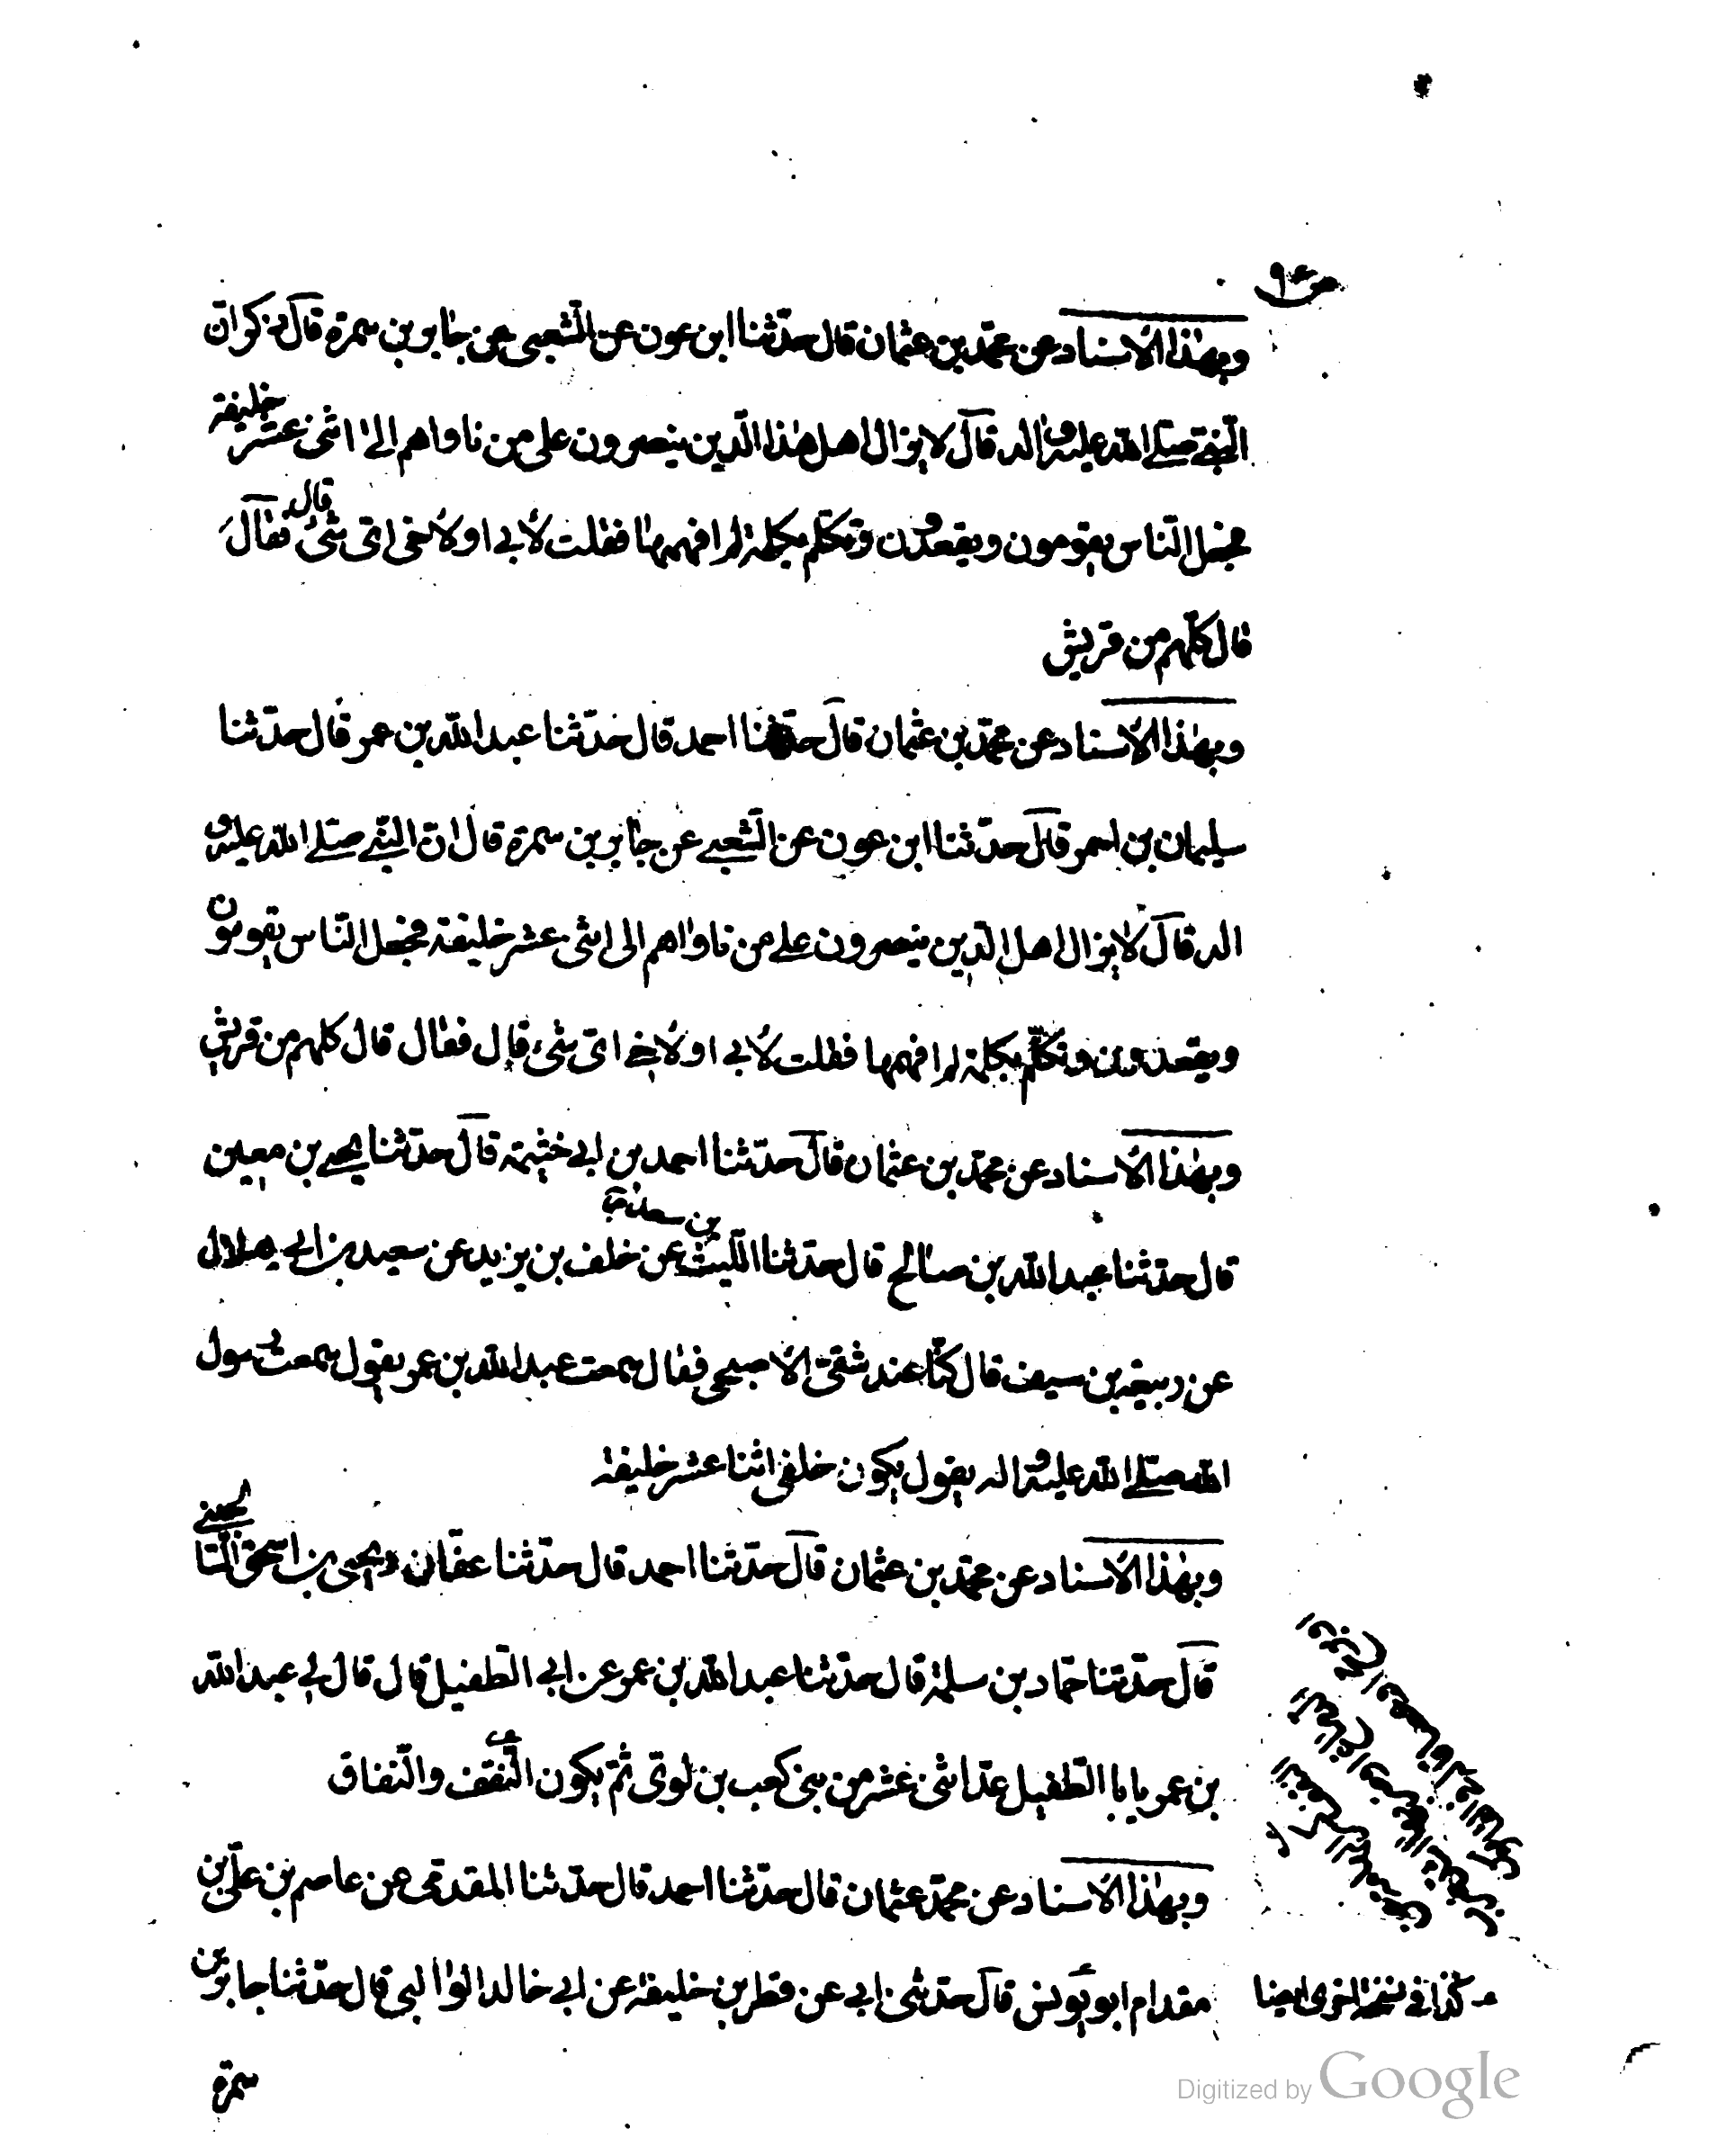 وبهذا الاسناد عن محمد بن عثمان قال حدثنا ابن عون عن الشعبي عن جابر بن سمرة قال ذكر ان
النبي صلى الله عليه واله قال لا يزال اهل هذا الدين ينصرون على من ناواهم الى اثنى عشر خليفة
فجعل الناس يقومون ويقعدون وتكلم بكلمة لم افهمها فقلت لابي او لاخي اي شئ قال فقال
قال كلهم من قريش
وبهذا الاسناد عن محمد بن عثمان قال حدثنا احمد قال حدثنا عبد الله بن عمر قال حدثنا
سليمان بن احمر قال حدثنا ابن عون عن الشعبي عن جابر بن سمرة قال ان النبي صلى الله عليه و
اله قال لا يزال اهل الدين ينصرون على من ناواهم الى اثنى عشر خليفة فجعل الناس يقومون
ويقعدون وتكلم بكلمة لم افهمها فقلت لابي او لاخي اي شئ قال فقال قال كلهم من قريش
وبهذا الاسناد عن محمد بن عثمان قال حدثنا احمد بن ابي خثيمة قال حدثنا يحيى بن معين
قال حدثنا عبد الله بن صالح قال حدثنا الليث بن سعد عن خلف بن يزيد عن سعيد بن ابي هلال
عن ربيعة بن سيف قال كنا عند شقى الاصبحي فقال سمعت عبد الله بن عمر يقول سمعت رسول
الله صلى الله عليه واله يقول يكون خلفي اثنا عشر خليفة
وبهذا الاسناد عن محمد بن عثمان قال حدثنا احمد قال حدثنا عفان ويحيى بن اسحق
قال حدثنا حماد بن سلمة قال حدثنا عبد الله بن عمر عن ابي الطفيل قال قال لي عبد الله
بن عمر يابا الطفيل عد اثنى عشر من بني كعب بن لوى ثم يكون النقف والنفاق
وبهذا الاسناد عن محمد عثمان قال حدثنا احمد قال حدثنا المقدمى عن عاصم بن على بن
مقدام ابو يونس قال حدثنى ابي عن فطر بن خليفة عن ابي خالد الوالبي قال حدثنا جابر بن
كذا في نسخة اخرى ايضا
سمرة
Digitized by Google